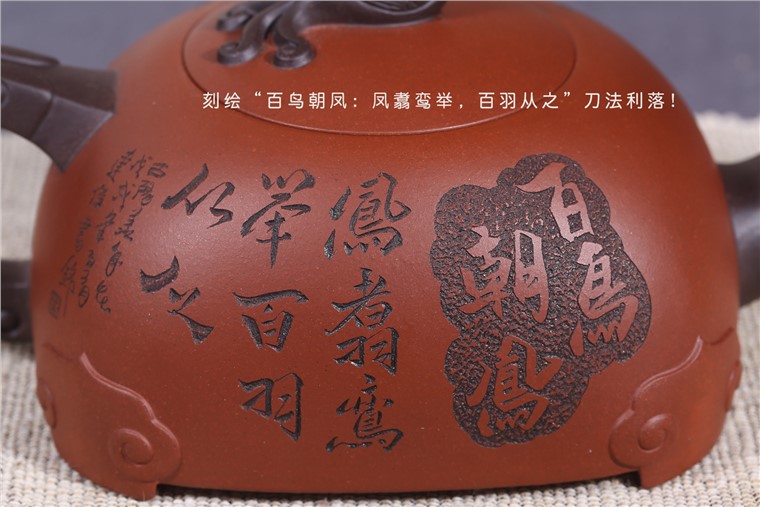 刻绘“百鸟朝凤：凤翥鸾举，百羽从之”刀法利落！
百鳥
朝鳳
鳳翥鸞
举百羽
从之